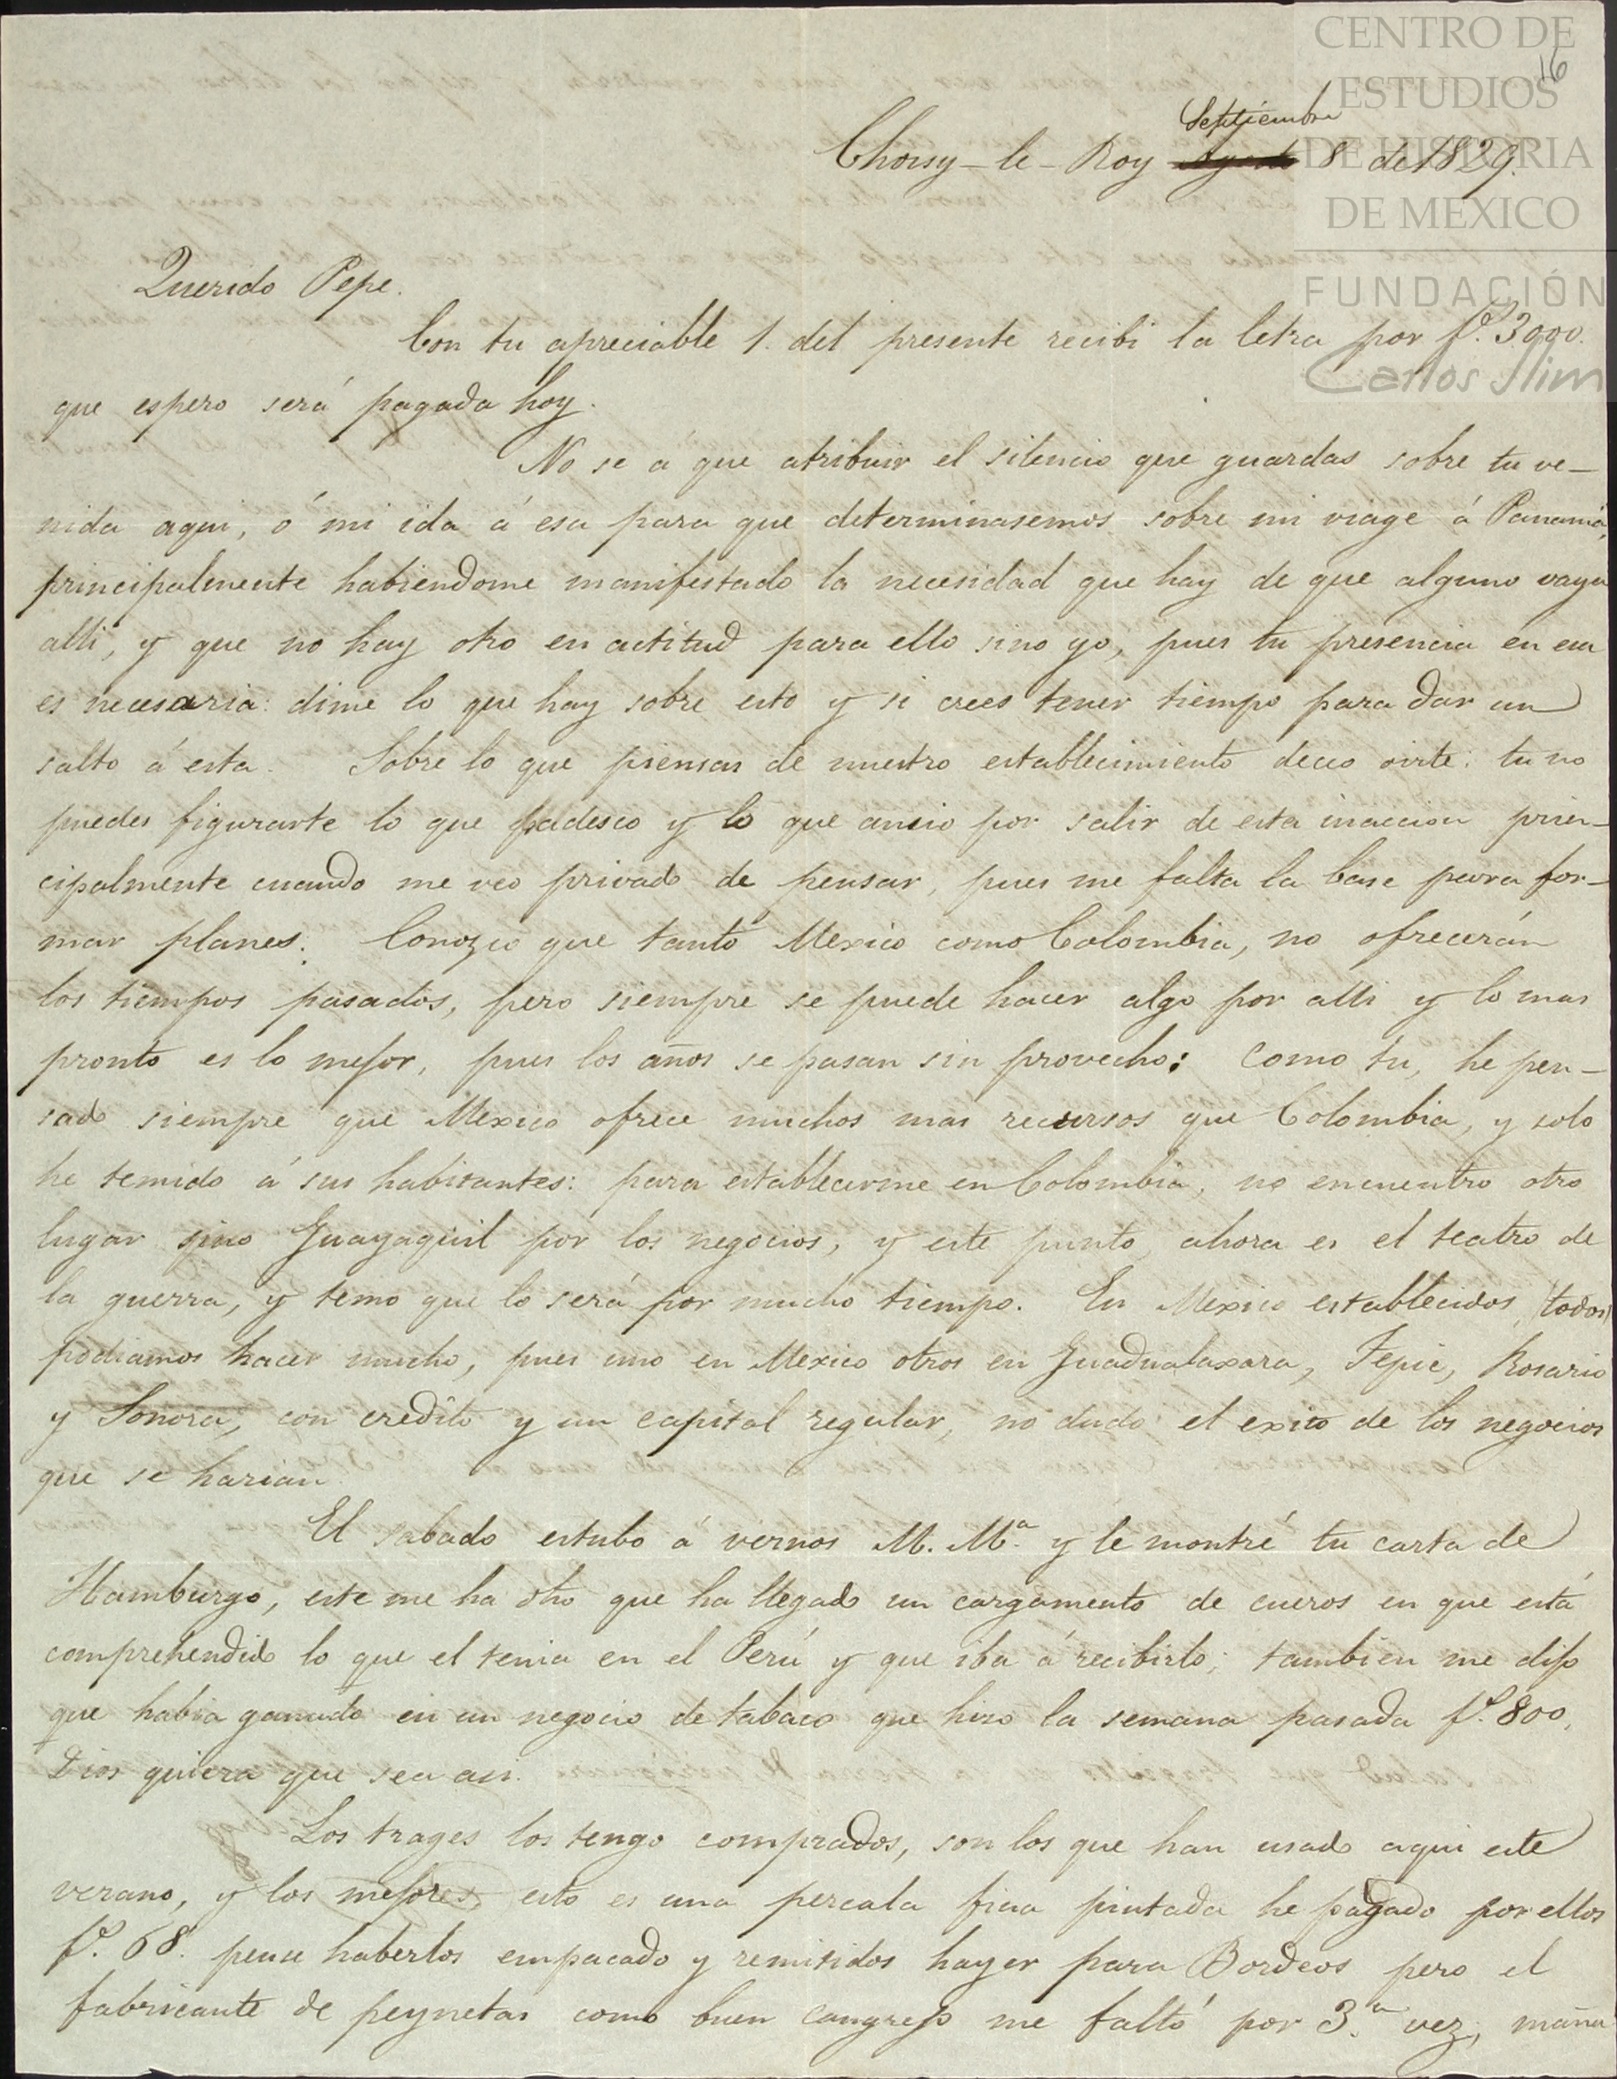 CENTRO DE
ESTUDIOS
DE HISTORIA
DE MEXICO
FUNDACIÓN
Carlos Slim
16
Septiembre
Choisy-le-Roy Agosto 8 de 1829.
Querido Pepe.
Con tu apreciable 1. del presente recibi la letra por f.s 3000.
que espero será pagada hoy.
No se a que atribuir el silencio que guardas sobre tu ve-
nida aqui, ó mi ida á esa para que determinasemos sobre mi viage á Panamá,
principalmente habiendome manifestado la necesidad que hay de que alguno vaya
alli, y que no hay otro en actitud para ello sino yo, pues tu presencia en esa
es necesaria: dime lo que hay sobre esto y si crees tener tiempo para dar un
salto á esta. Sobre lo que piensas de nuestro establecimiento deceo oirte: tu no
puedes figurarte lo que padesco y lo que ansio por salir de esta inaccion prin-
cipalmente cuando me veo privado de pensar, pues me falta la base para for-
mar planes. Conozco que tanto Mexico como Colombia, no ofrecerán
los tiempos pasados, pero siempre se puede hacer algo por alli y lo mas
pronto es lo mejor, pues los años se pasan sin provecho: como tu, he pen-
sado siempre que Mexico ofrece muchos mas recursos que Colombia, y solo
he temido á sus habitantes: para establecerme en Colombia, no encuentro otro
lugar sino Guayaquil por los negocios, y este punto ahora es el teatro de
la guerra, y temo que lo será por mucho tiempo. En Mexico establecidos todos
podiamos hacer mucho, pues uno en Mexico otros en Guadualaxara, Tepic, Rosario
y Sonora, con credito y un capital regular, no dudo el exito de los negocios
que se harian.
El sabado estubo á vernos M. M.a y le montré tu carta de
Hamburgo, este me ha dho que ha llegado un cargamento de cueros en que está
comprehendido lo que el tenia en el Perú y que iba á recibirlo; tambien me dijo
que habia ganado en un negocio de tabaco que hizo la semana pasada f.s 800,
Dios quiera que sea asi.
Los trages los tengo comprados, son los que han usado aqui este
verano, y los mejores esto es una percala fina pintada he pagado por ellos
f.s 68. pense haberlos empacado y remitidos hayer para Bordeos pero el
fabricante de peynetas como buen cangrejo me faltó por 3.a vez, maña